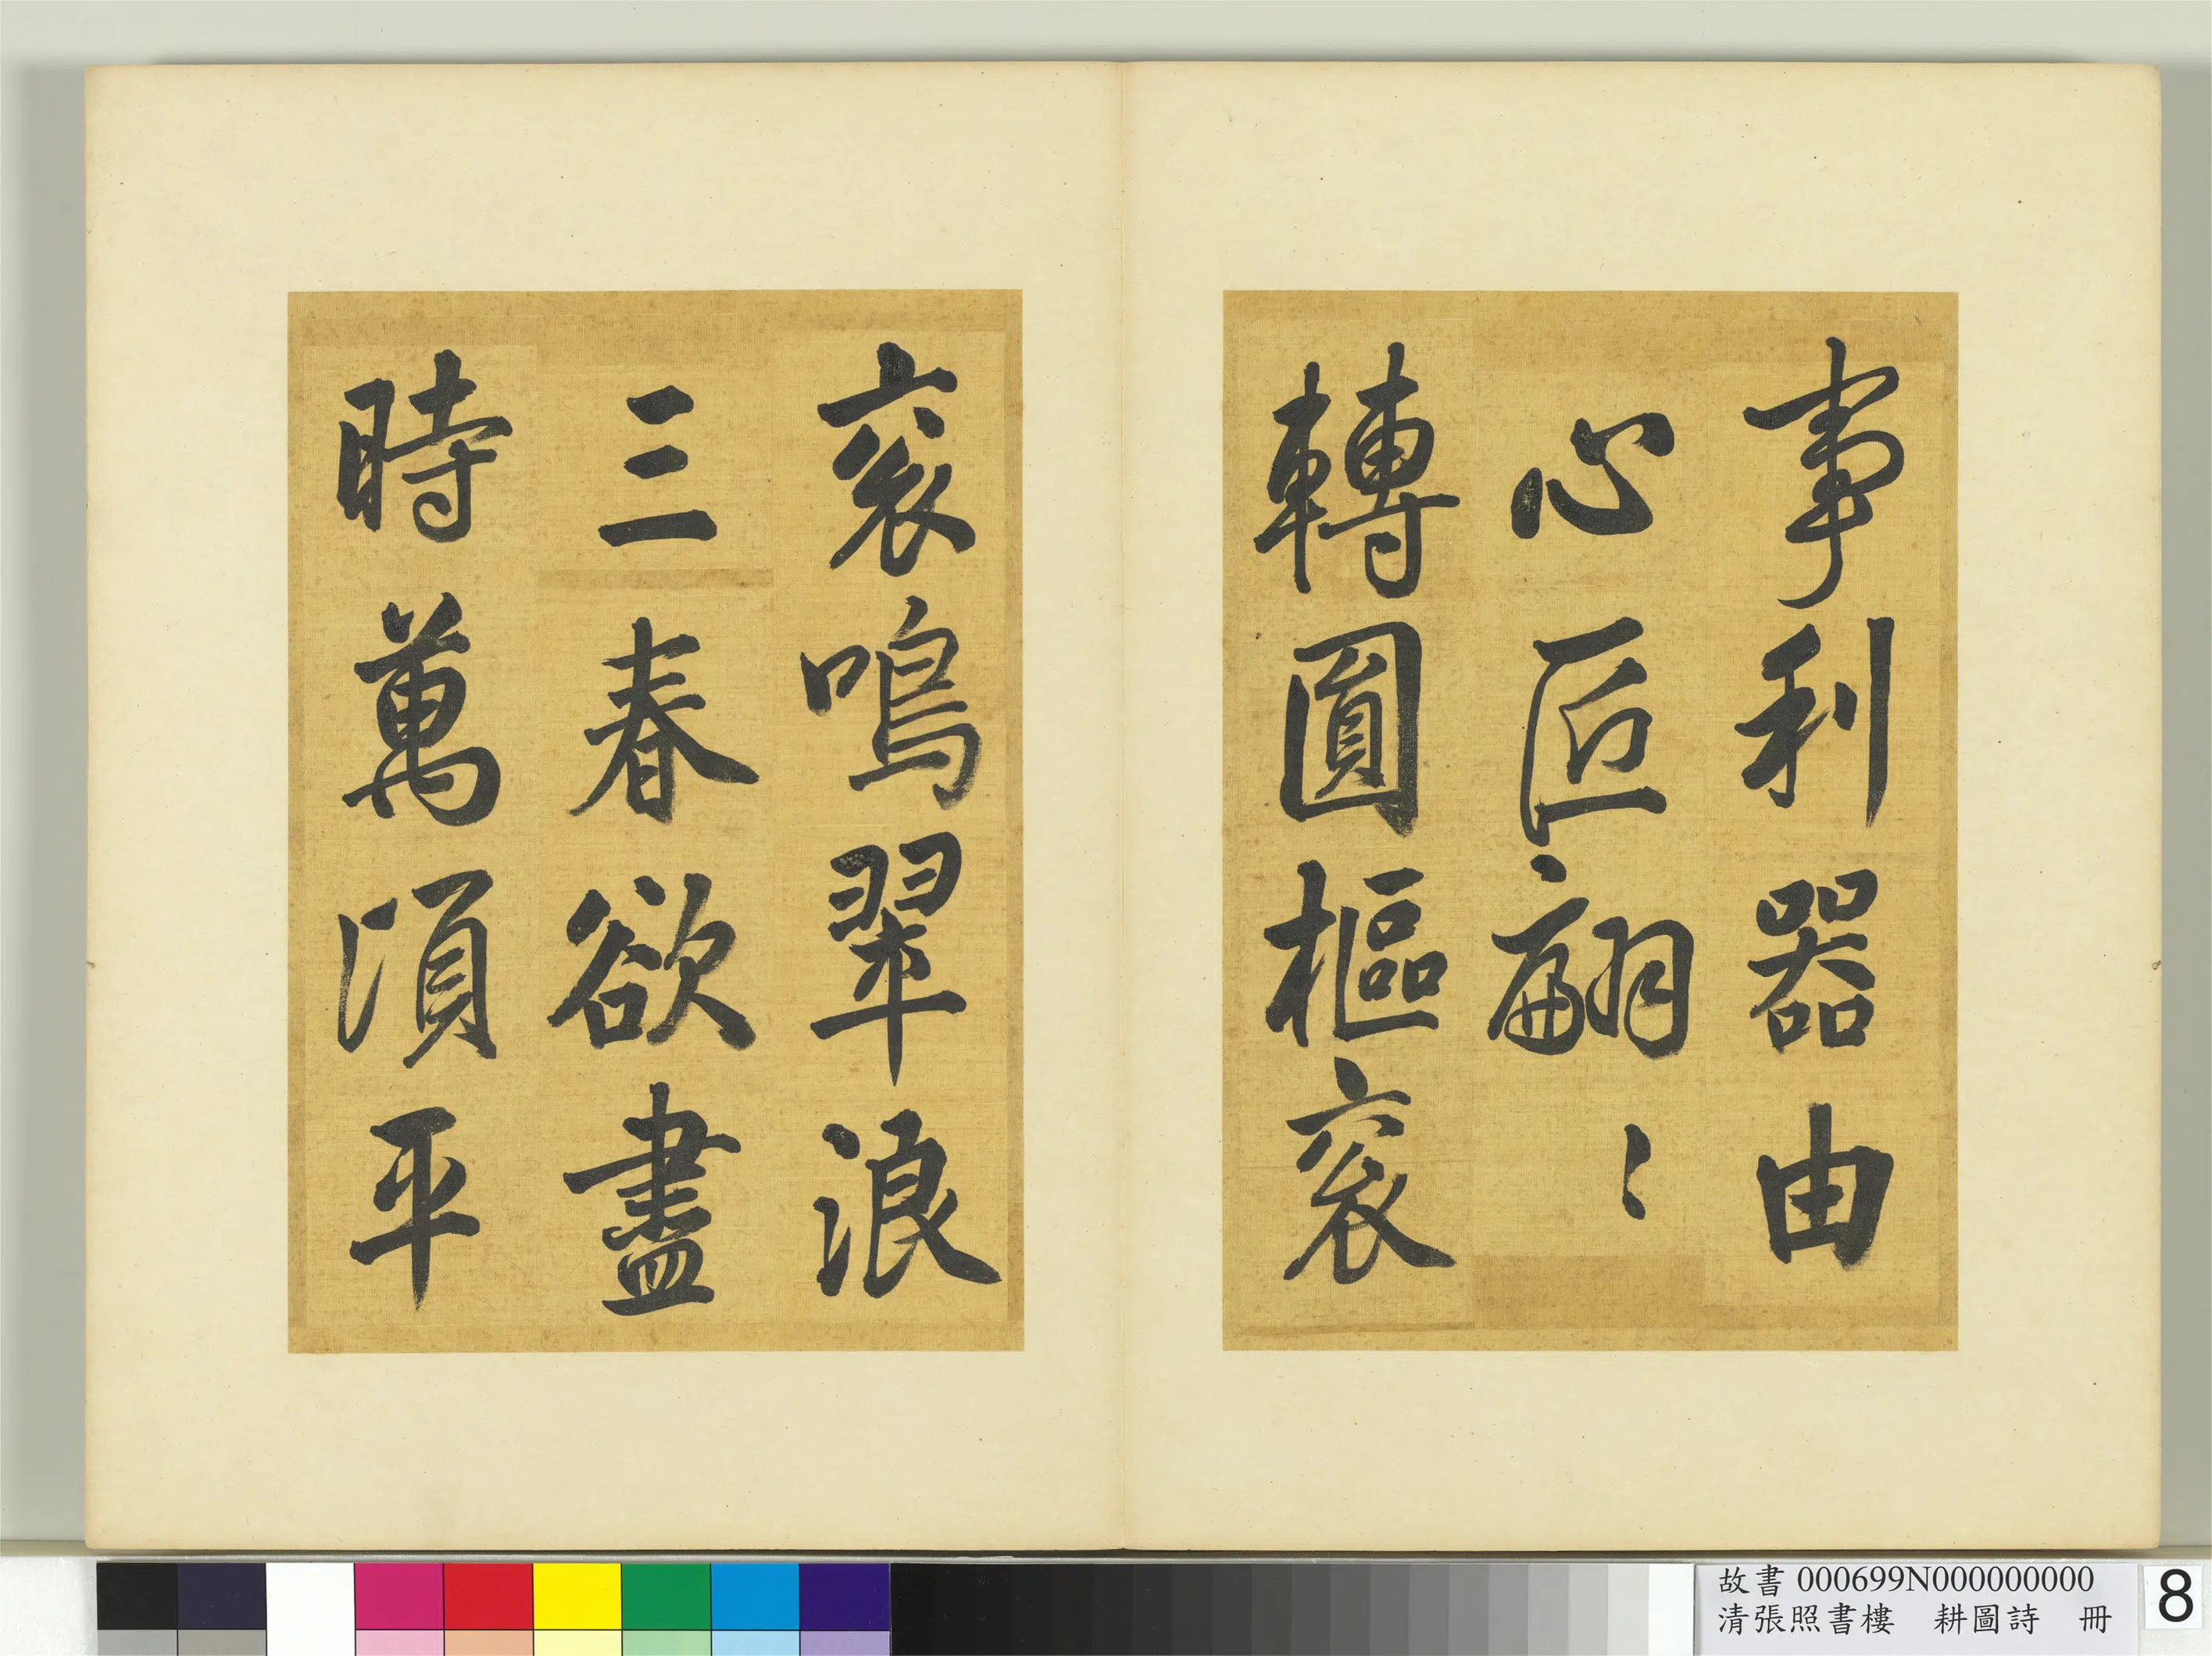 事利器由
心匠翩〻
轉圓樞衮
衮鳴翠浪
三春欲盡
時萬頃平
故書 000699N000000000
清張照書樓 耕圖詩 冊
8